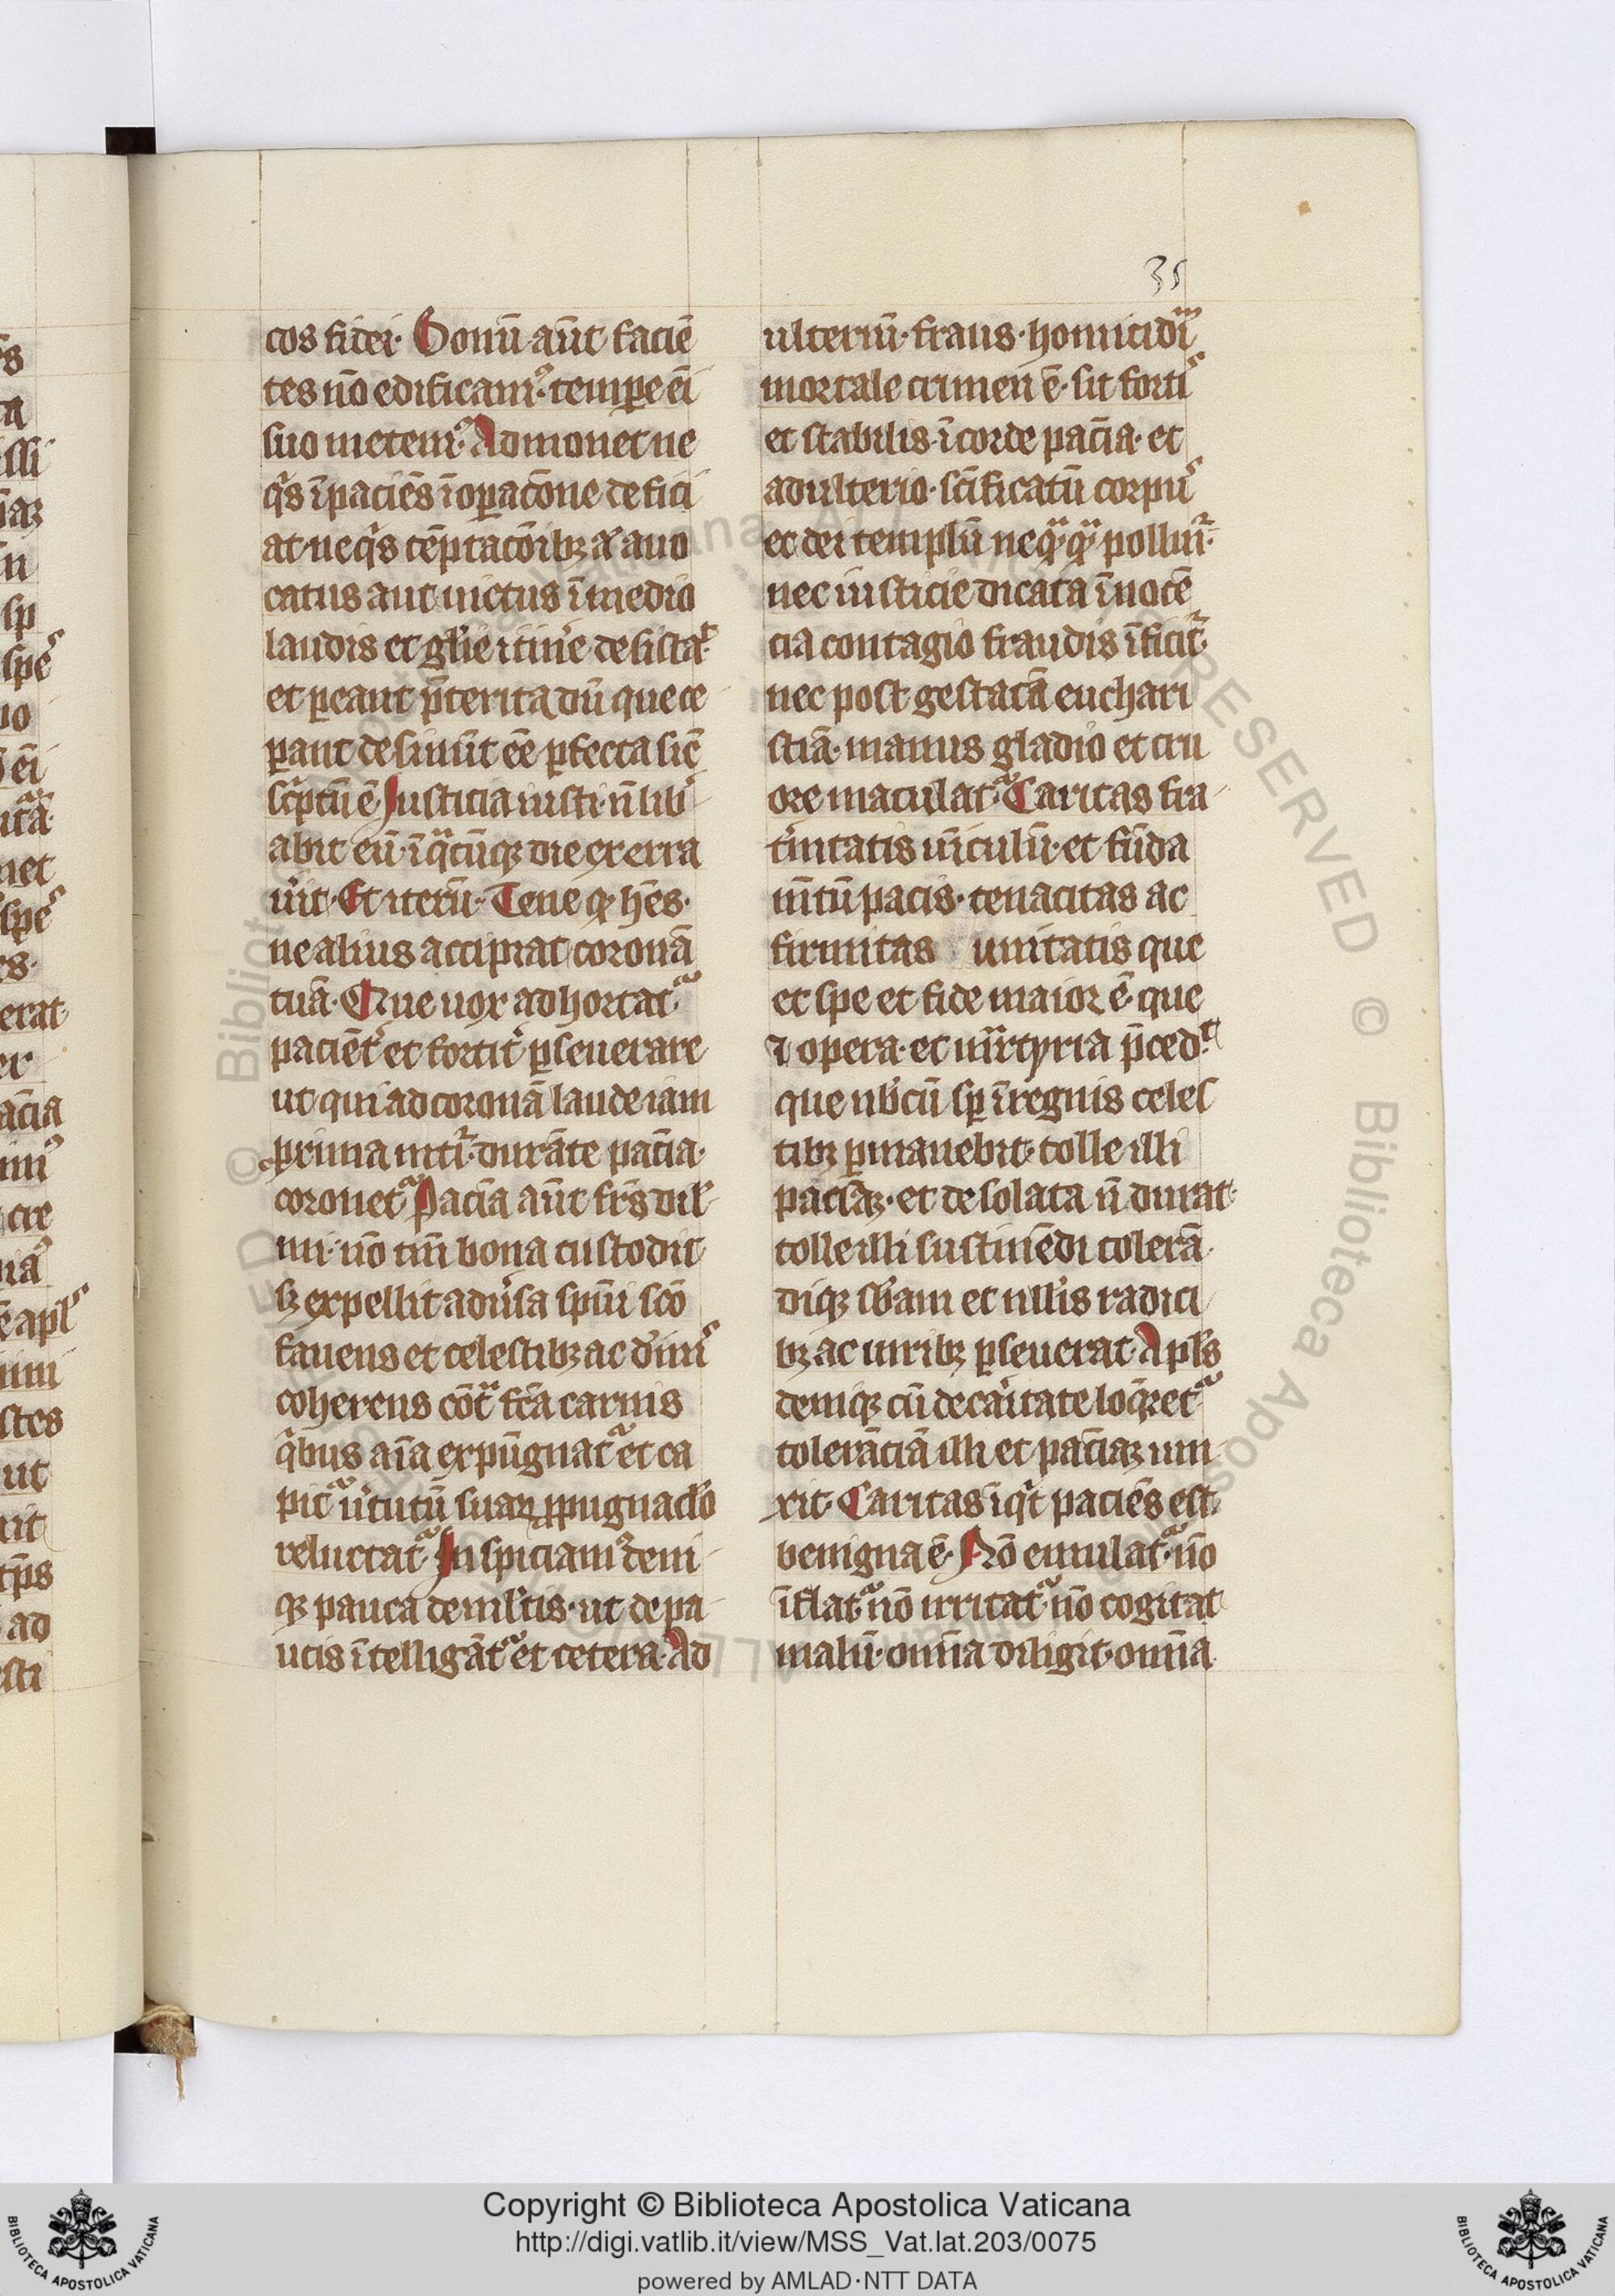 35
cos fidei· Bonū aūt faciē
tes nō edificam᷒· temꝑe eī
suo metem᷒· Admonet ne
qͥs īpaciēs ī oꝑacōne defici
at· ne qͥs tēptacōībꝫ aͭ auo
catus aut uictus ī medio
laudis et glͥie itinͤe desistatᷣ·
et ꝑeant p̄terita dū que ce
ꝑant desinūt eē ꝑfecta sic̄
scͥptū ē· Justicia iusti· n̄ libͥ
abit eū· ī qͣcūqꝫ die exerra
uͥit· Et iterū· Tene qͦ hēs·
ne alius accipiat coronā
tuā· Que uox adhortatᷣ
paciēt̛ et fortit̛ ꝑseuerare
ut qui ad coronā laude iam
prima nitiᷣ· durāte pac̄ia·
coronetᷣ Pac̄ia aūt frs̄ dil̛
mi· nō tm̄ bona custodit·
sꝫ expellit adūsa spūi scō
fauens et celestibꝫ ac dͥiniˢ
coherens cōtͣ fcā carnis
qͥbus aīa expūgnatᷣ et ca
pitᷣ ưtutū suaꝝ ꝓpugnacl̛o
reluctatᷣ· Inspiciam᷒ deni
qꝫ pauca de ml̛tis· ut de pa
ucis ītelligātᷣ et cetera· Ad
ulteriū· fraus· homicidiū
mortale crimen ē· sit fortiˢ
et stabilis· ī corde pac̄ia· et
adulterio· scīficatū corpuˢ
et dei templū neqͣqͣ polluiᷣ·
nec iusticie dicata īnocē
cia contagio fraudis īficitᷣ·
nec post gestatā euchari
stiā· manus gladio et cru
ore maculatᷣ· Caritas fra
t̛nitatis uīculū· et fūda
mtū pacis· tenacitas ac
firmitas unitatis que
et spe et fide maior ē· que
⁊ opera· et mr̄tyria p̄cedᷣt
que nb̛cū sꝑ ī regnis celes
tibꝫ ꝑmanebit· tolle illi
pac̄iaꝫ· et desolata n̄ durat·
tolle illi sustinēdi tolerā
diqꝫ sb̛am et nll̛is radici
bꝫ ac uiribꝫ ꝑseuerat· Apl̛s
deniqꝫ cū de caͥtate loqͣretᷣ
tolerāciā illi et pac̄iaꝫ iun
xit· Caritas īqͥt paciēs est·
benigna ē· Nō emulatᷣ· nō
īflatᷣ nō irritatᷣ nō cogitat
malū· om̄ia diligit· om̄ia
Copyright © Biblioteca Apostolica Vaticana
http://digi.vatlib.it/view/MSS_Vat.lat.203/0075
powered by AMLAD·NTT DATA
BIBLIOTECA APOSTOLICA VATICANA
BIBLIOTECA APOSTOLICA VATICANA